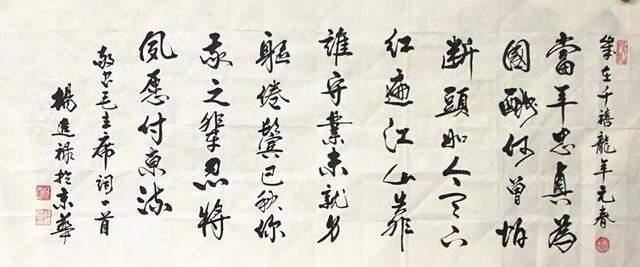 歲在千禧龍年元春
當年忠貞為
國酬何曾怕
斷頭如今天下
紅遍江山靠
誰守業未就身
軀倦鬢已秋你
我之輩忍將
夙愿付東流
敬书毛主席詞一首
楊進禄於京華